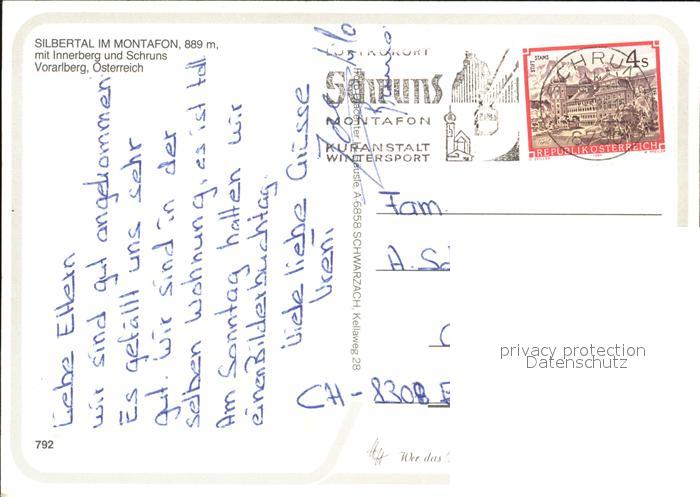 SILBERTAL IM MONTAFON, 889 m,
mit Innerberg und Schruns
Vorarlberg, Österreich
Liebe Eltern
wir sind gut angekommen.
Es gefällt uns sehr
gut. Wir sind in der
selben Wohnung, es ist toll.
Am Sonntag hatten wir
einen Bilderbuchtag.
Viele liebe Grüsse
Vreni
LUFTKURORT
Schruns
MONTAFON
KURANSTALT
WINTERSPORT
STIFT STAMS
4 S
SCHRUNS
REPUBLIK ÖSTERREICH
A-6858 SCHWARZACH, Kellaweg 28
Fam.
A. Sc
CH-8308
privacy protection
Datenschutz
792
Wer das